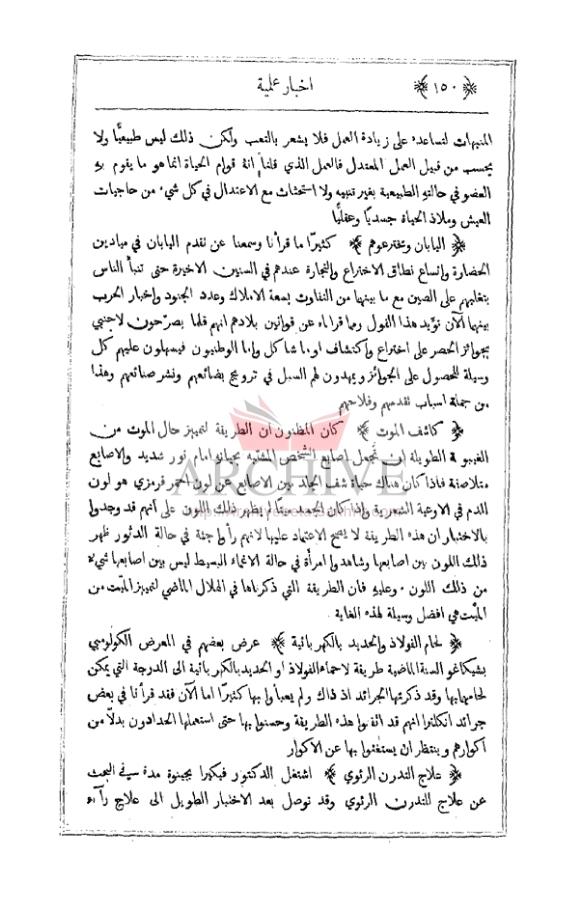 ﴿١٥٠﴾ اخبار علمية
المنبهات لتساعده على زيادة العمل فلا يشعر بالتعب ولكن ذلك ليس طبيعيًا ولا
يحسب من قبيل العمل المعتدل فالعمل الذي قلنا انهُ قوام الحياة انما هو ما يقوم بهِ
العضو في حالتهِ الطبيعية بغير تنبيه ولا استحثاث مع الاعتدال في كل شيء من حاجيات
العيش وملاذ الحياة جسديًا وعقليًا
﴿ اليابان ومخترعوهم ﴾ كثيرًا ما قرأنا وسمعنا عن تقدم اليابان في ميادين
الحضارة واتساع نطاق الاختراع والتجارة عندهم في السنين الاخيرة حتى تنبأ الناس
بتغلبهم على الصين مع ما بينهما من التفاوت بسعة الاملاك وعدد الجنود واخبار الحرب
بينهما الآن تؤيد هذا القول ومما قرأناه عن قوانين بلادهم انهم قلما يصرّحون لاجنبي
بجوائز الحصر على اختراع واكتشاف او ما شاكل واما الوطنيون فيسهلون عليهم كل
وسيلة للحصول على الجوائز ويمهدون لهم السبل في ترويج بضائعهم ونشر صنائعهم وهذا
من جملة اسباب تقدمهم وفلاحهم
﴿ كاشف الموت ﴾ كان المظنون ان الطريقة لتمييز حال الموت من
الغيبوبة الطويلة ان تجعل اصابع الشخص المشتبه بحياتهِ امام نور شديد والاصابع
متلاصقة فاذا كان هناك حياة شف الجلد بين الاصابع عن لون احمر قرمزي هو لون
الدم في الاوعية الشعرية واذا كان الجسد ميتًا لم يظهر ذلك اللون على أنهم قد وجدوا
بالاختبار ان هذه الطريقة لا يصح الاعتماد عليها لانهم رأوا جثة في حالة الدثور ظهر
ذلك اللون بين اصابعها وشاهدوا امرأة في حالة الاغماء البسيط ليس بين اصابعها شيء
من ذلك اللون . وعليهِ فان الطريقة التي ذكرناها في الهلال الماضي لتمييز الميّت من
الميّت هي افضل وسيلة لهذه الغاية
﴿ لحام الفولاذ والحديد بالكهربائية ﴾ عرض بعضهم في المعرض الكولومبي
بشيكاغو السنة الماضية طريقة لاحماء الفولاذ او الحديد بالكهربائية الى الدرجة التي يمكن
لحامهما بها وقد ذكرتها الجرائد اذ ذاك ولم يعبأوا بها كثيرًا اما الآن فقد قرأنا في بعض
جرائد انكلترا انهم قد اتقنوا هذه الطريقة وحسنوا بها حتى استعملها الحدادون بدلاً من
اكوارهم وينتظر ان يستغنوا بها عن الاكوار
﴿ علاج التدرن الرئوي ﴾ اشتغل الدكتور فيكيرا بجينوة مدة في البحث
عن علاج للتدرن الرئوي وقد توصل بعد الاختبار الطويل الى علاج رآه
ARCHIVE